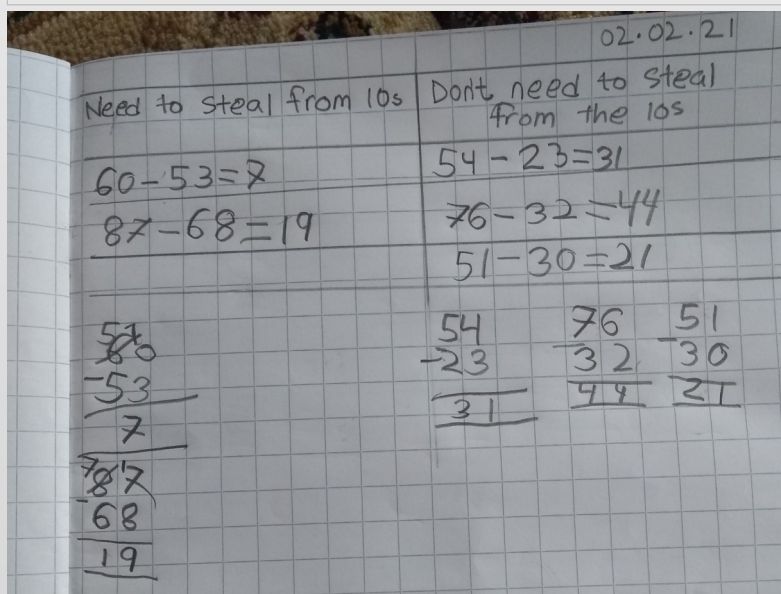 02.02.21
Need to steal from 10s
Don't need to steal
from the 10s
60-53=7
87-68=19
54-23=31
76-32=44
51-30=21
5 1
60
-53
7
7 1
87
-68
19
54
-23
31
76
-32
44
51
-30
21